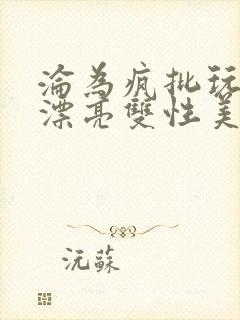 淪為瘋批玩
漂亮雙性美
沅蘇